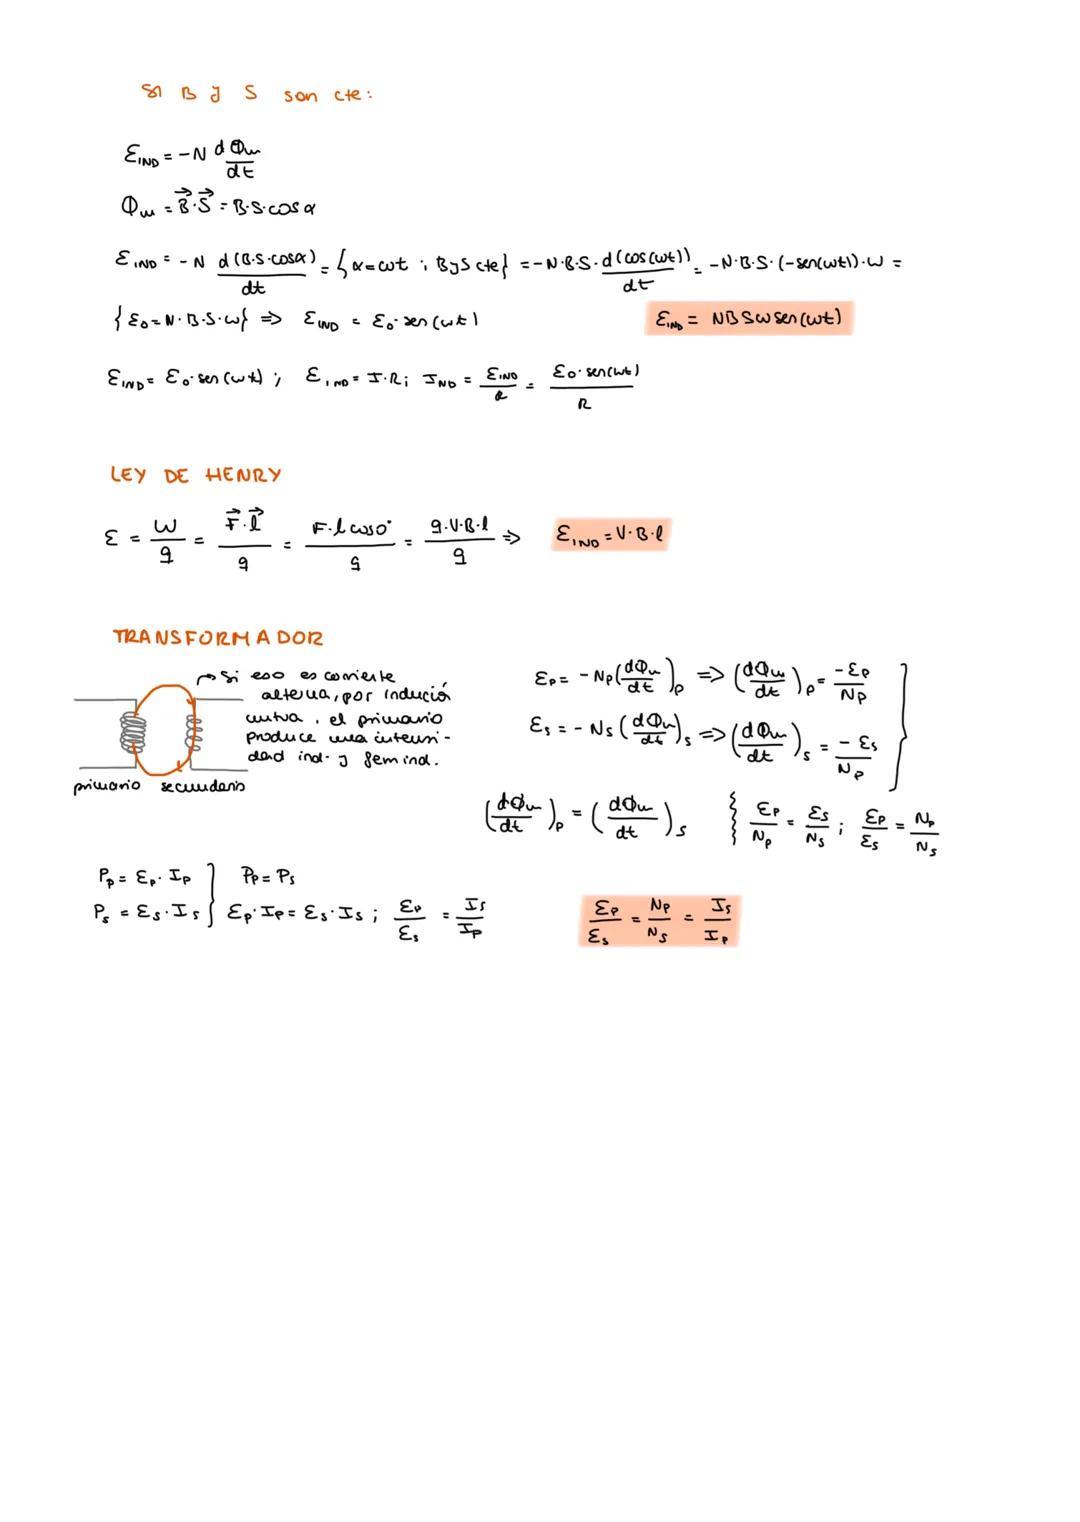 SI B y S son cte:
ε_IND = -N dΦm/dt
Φm = B⃗·S⃗ = B·S·cosα
ε_IND = -N d(B·S·cosα)/dt = {α=ωt ; B y S cte} = -N·B·S· d(cos(ωt))/dt = -N·B·S·(-sen(ωt))·ω =
{ε₀=N·B·S·ω} => ε_IND = ε₀·sen(ωt) ε_IND = NBSω sen(ωt)
ε_IND = ε₀·sen(ωt) ; ε_IND = I·R ; I_ND = ε_IND/R = ε₀·sen(ωt)/R
LEY DE HENRY
ε = W/q = F⃗·l⃗/q = F·l cos0°/q = q·V·B·l/q => ε_IND = V·B·l
TRANSFORMADOR
→ Si eso es corriente
alterna, por indución
mutua, el primario
produce una intensi-
dad ind. y fem ind.
primario secundario
εp = -Np(dΦm/dt)p => (dΦm/dt)p = -εp/Np
εs = -Ns(dΦm/dt)s => (dΦm/dt)s = -εs/Np
(dΦm/dt)p = (dΦm/dt)s } εp/Np = εs/Ns ; εp/εs = Np/Ns
Pp = εp·Ip } Pp = Ps
Ps = εs·Is } εp·Ip = εs·Is ; εp/εs = Is/Ip εp/εs = Np/Ns = Is/Ip